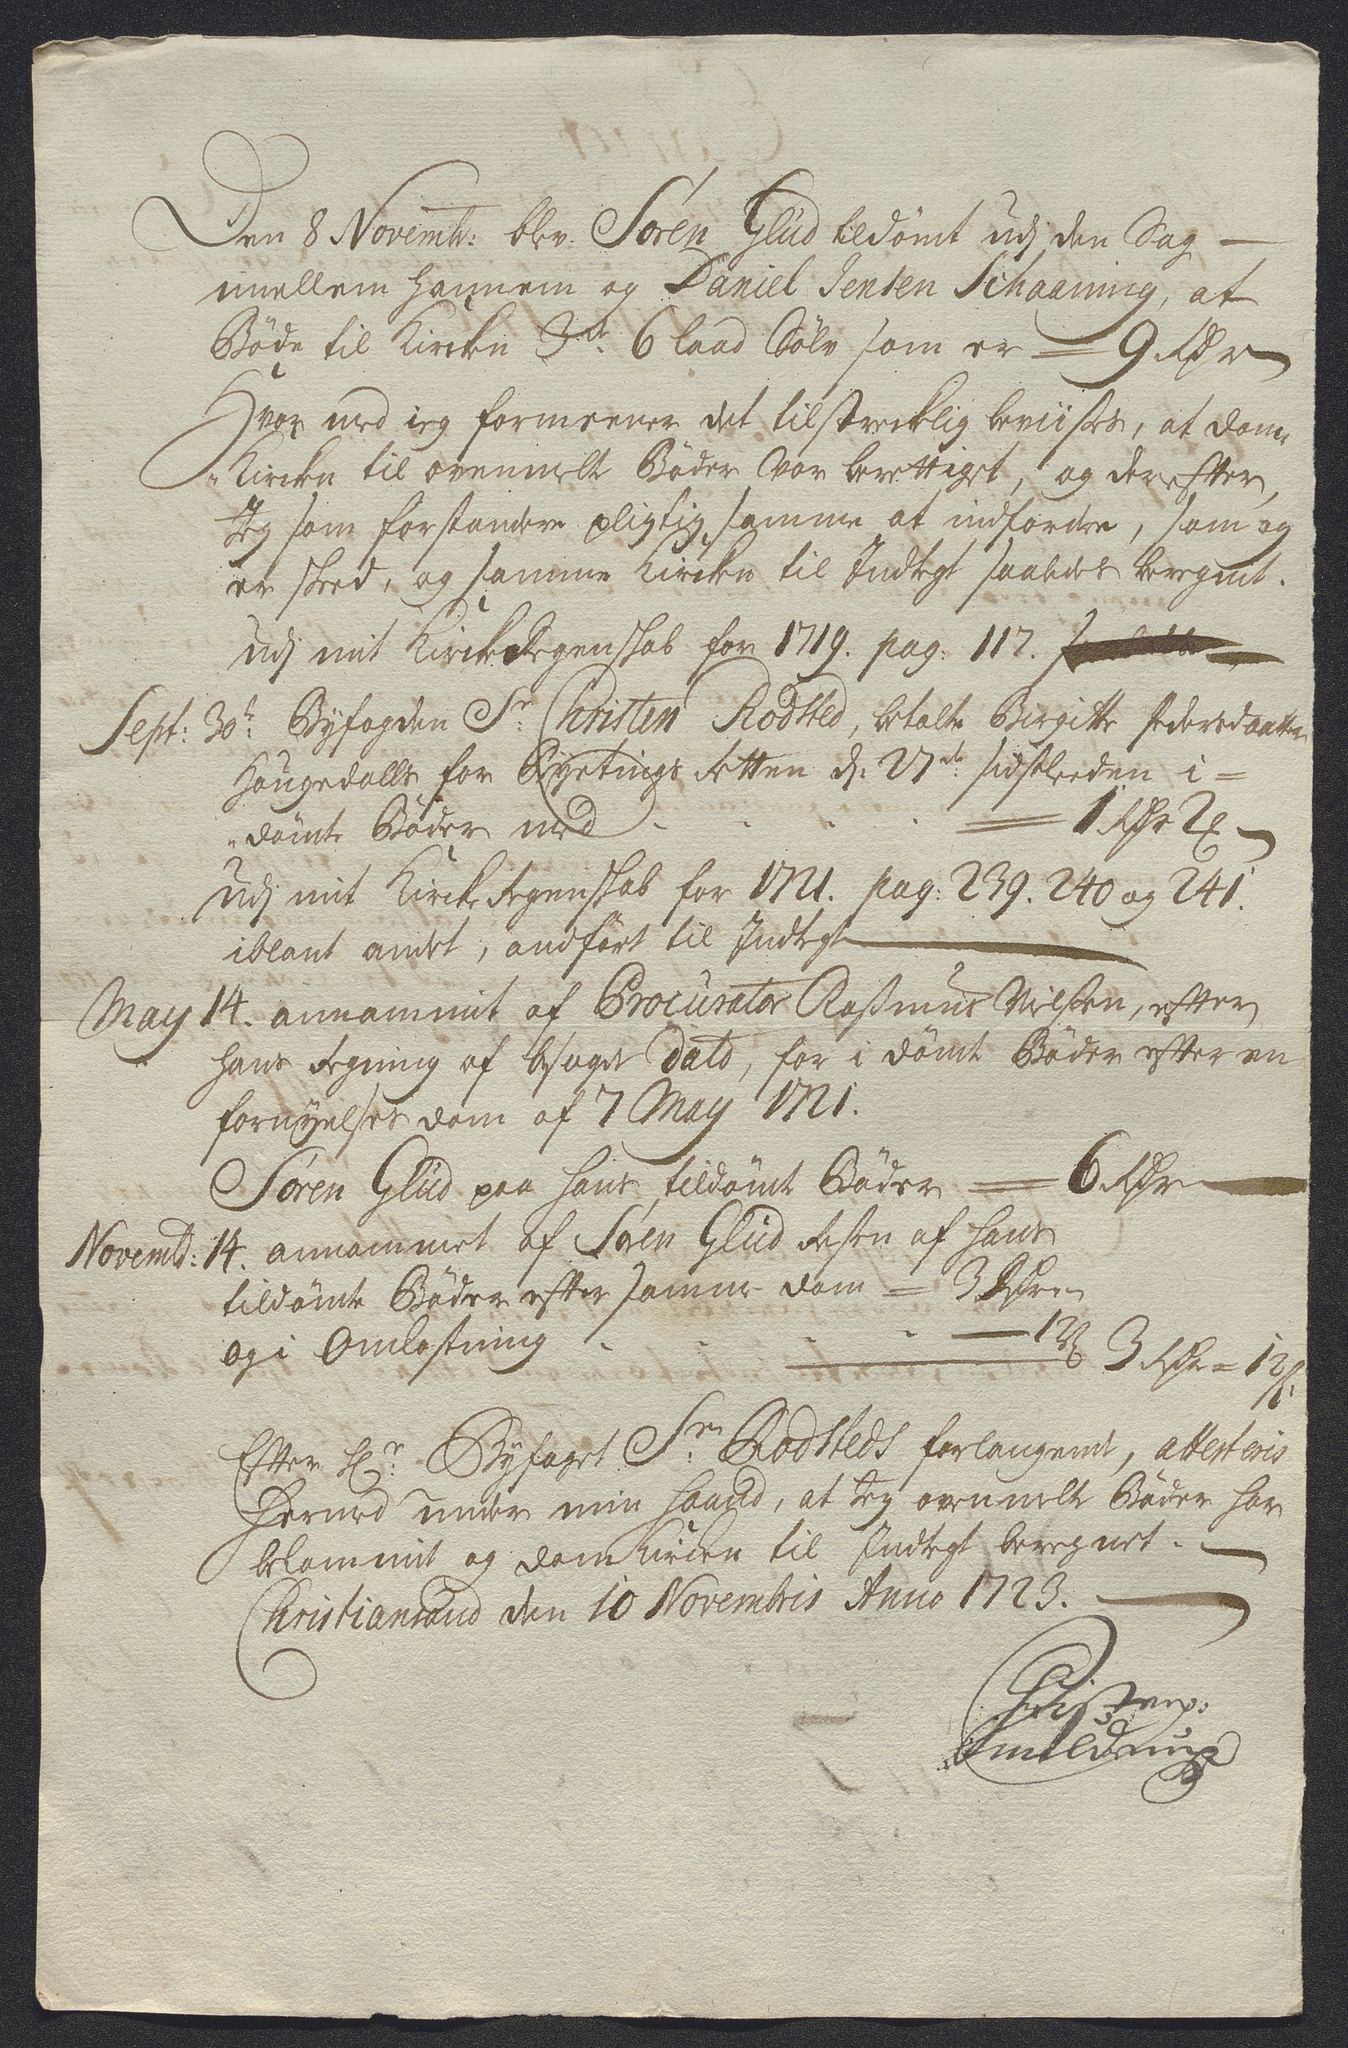 Den 8 Novemb: blev Sören Glüd tildömt udj den Sag
imellem hannem og Daniel Jensen Schaaning, at
Böde til Kircken 3de 6 Laad Sölv som er = 9 Rdr
Hvor med ieg formeener det tilstrecklig beviises, at dom
Kircken til ovenmelte Böder var berettiget, og derefter,
Jeg som forstandere pligtig samme at indfordre, som og
er skeed, og samme Kircken til Indtegt saaledes beregnet.
Udj mit Kirke Regenskab for 1719. pag: 117.
Sept: 30te Byfogden Sr Christen Rodsted, betalte Birgitte Pedersdaatter
Haugedalls for Byetings Retten d: 27de sidstleeden i=
dömte Böder med = 1 Rdr 2
Udj mit Kircke Regenskab for 1721. pag: 239. 240 og 241.
iblant andet, andfört til Indtegt
May 14. annammit af Procurator Rasmus Nielsen, efter
hans Regning af bsagde Dato, for i dömt Böder efter en
fornyelses dom af 7 May 1721.
Sören Glüd paa hans tildömte Böder = 6 Rdr
Novemb: 14. annammet af Sören Glüd Resten af hans
tildömte Böder efter samme dom = 3 Rdr
og i Omkostning 12 ß 3 Rdr = 12 ß
Efter Hr. Byfoget Sr. Rodsteds forlangende, attesteris
Hermed under min haand, at Jeg ovenmelte Böder har
bekommit og dom Kircken til Indtegt beregnet.
Christiansand den 10 Novembris Anno 1723.
Christenp:
Smildrup